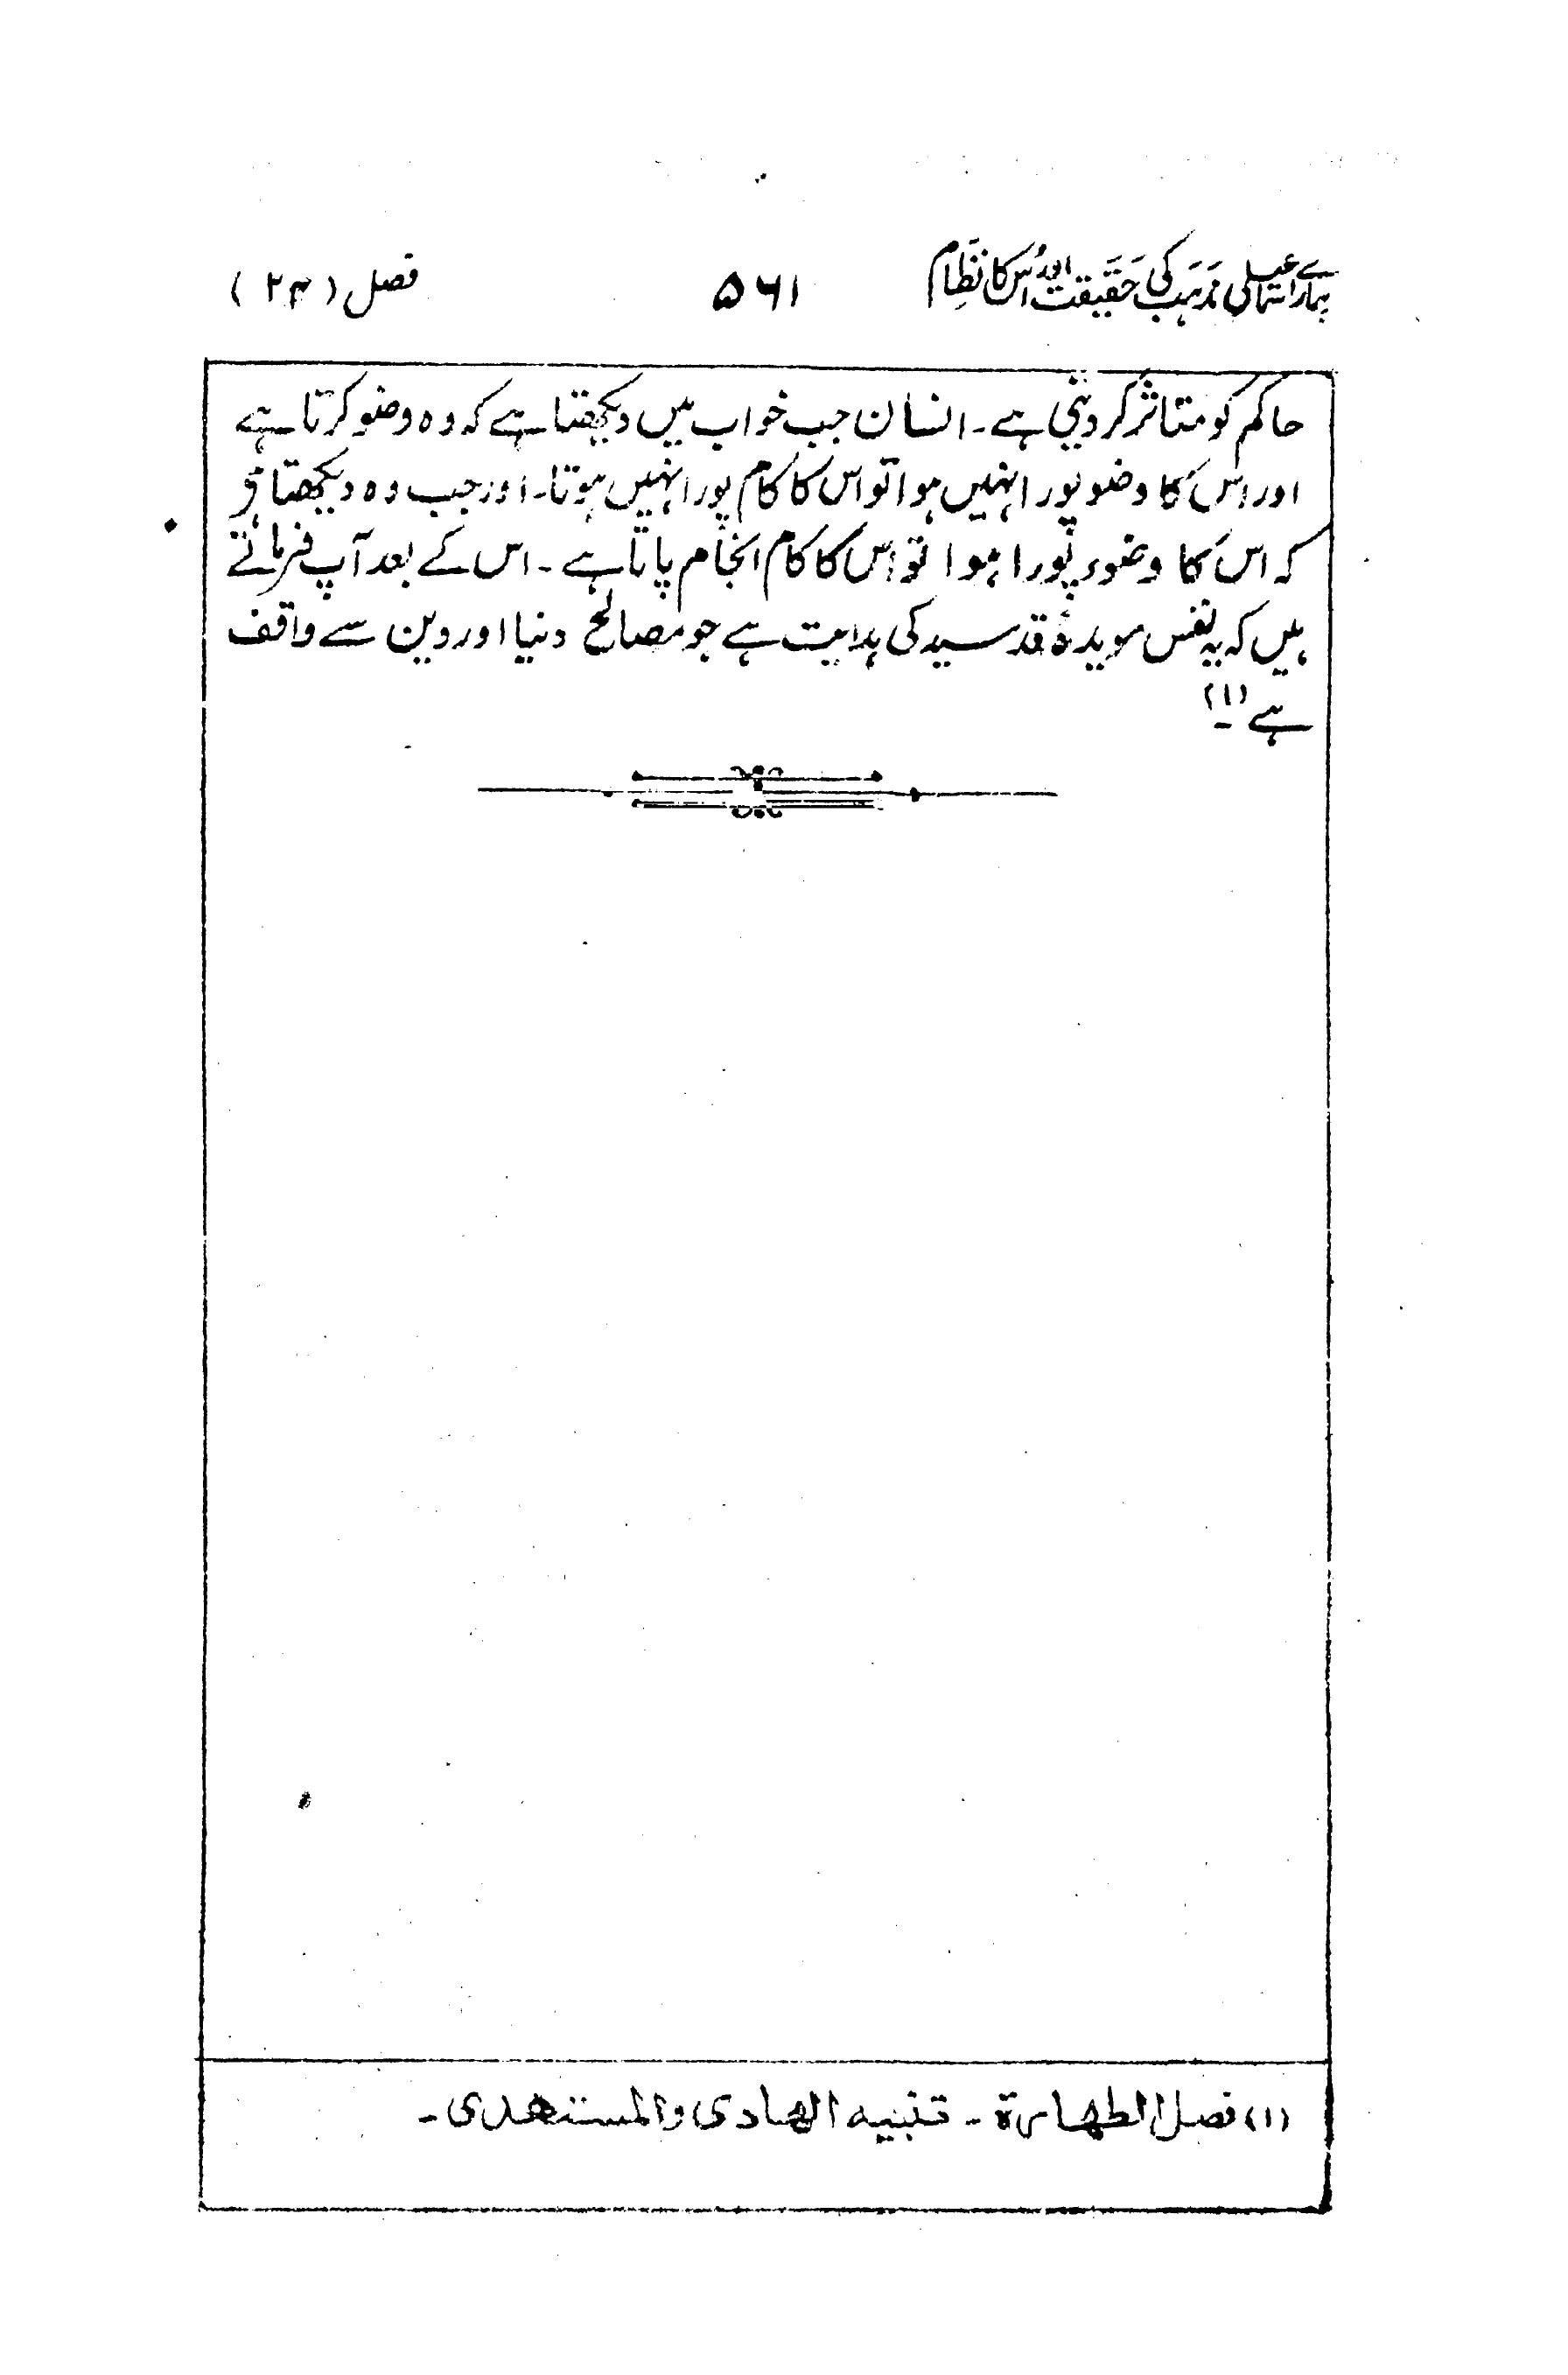 ہمارے اسمٰعیلی مذہب کی حقیقت اور اُس کا نظام
۵۶۱
فصل (۲۴)
حاکم کو متاثر کر دیتی ہے۔ انسان جب خواب میں دیکھتا ہے کہ وہ وضو کرتا ہے
اور اس کا وضو پورا نہیں ہوا تو اس کا کام پورا نہیں ہوتا۔ اور جب وہ دیکھتا ہو
کہ اس کا وضوء پورا ہوا تو اس کا کام انجام پاتا ہے۔ اس کے بعد آپ فرماتے
ہیں کہ یہ نفس مویدۂ قدسیہ کی ہدایت ہے جو مصالح دنیا اور دین سے واقف
ہے (۱)۔
(۱) فصل الطهارة۔ تنبیه الهادی والمستهدی۔